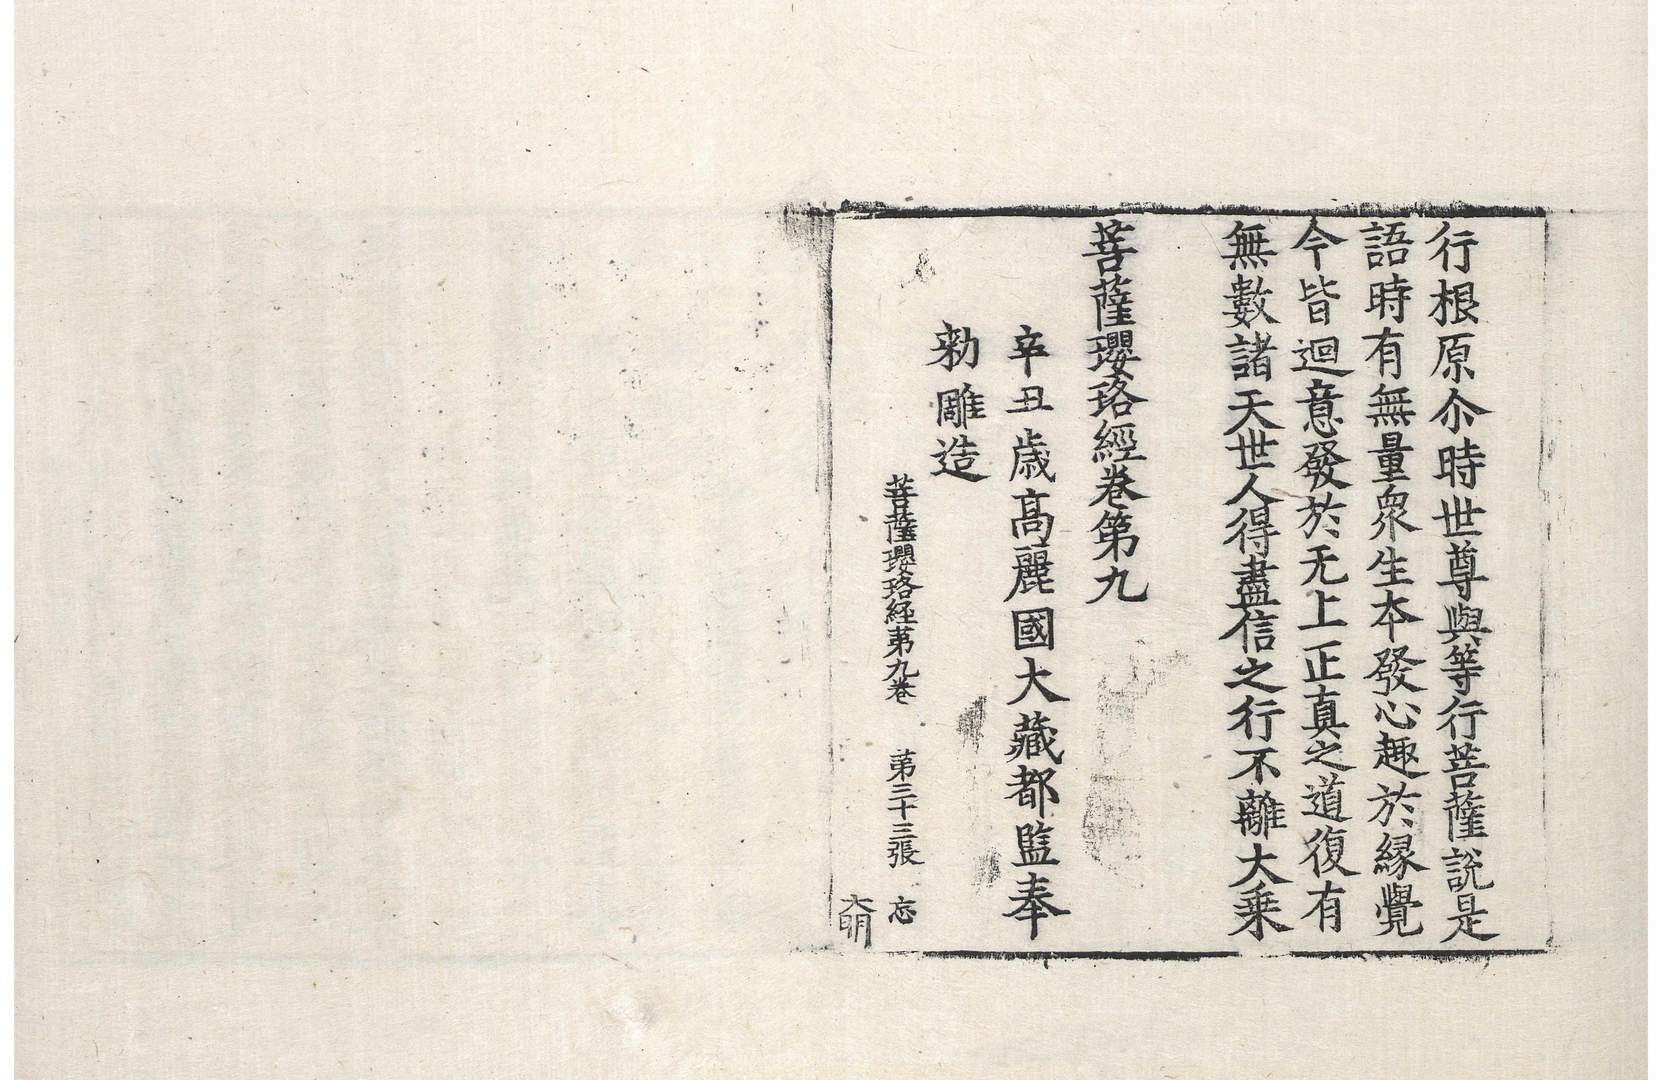 行根原尒時世尊與等行菩薩說是
語時有無量衆生本發心趣於緣覺
今皆迴意發於无上正真之道復有
無數諸天世人得盡信之行不離大乘
菩薩瓔珞經卷第九
辛丑歲高麗國大藏都監奉
勅雕造
菩薩瓔珞経苐九巻 苐三十三張 忘
大明